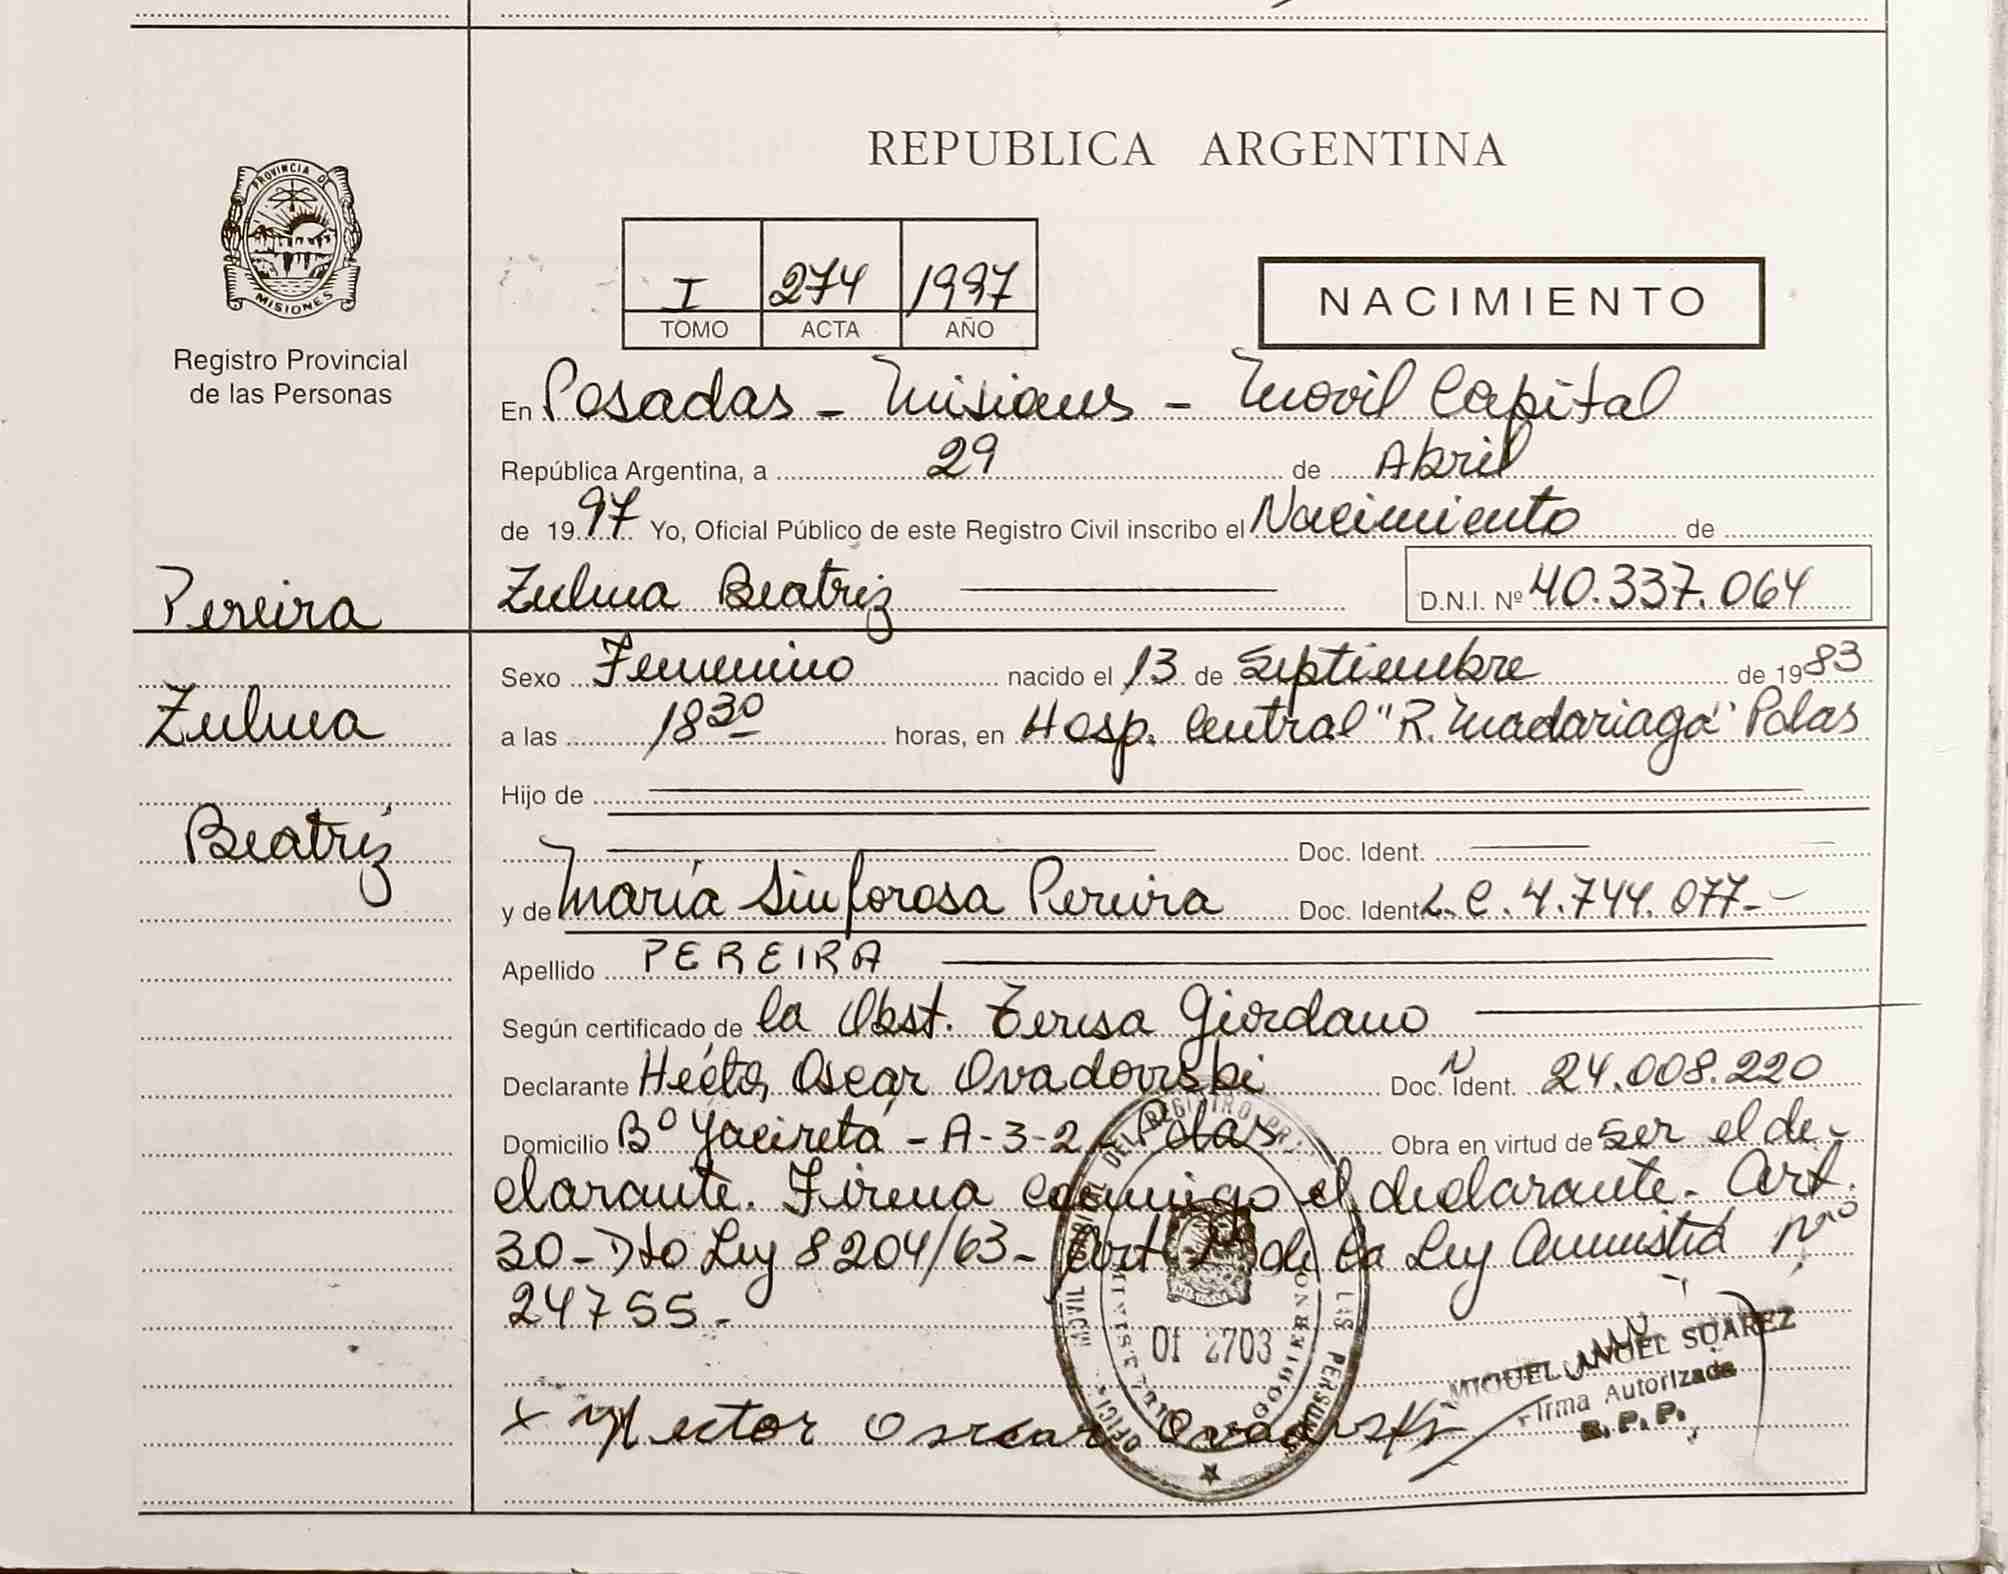 REPUBLICA ARGENTINA
PROVINCIA DE
MISIONES
Registro Provincial
de las Personas
I 274 1997
TOMO ACTA AÑO
NACIMIENTO
En Posadas - Misiones - Movil Capital
República Argentina, a 29 de Abril
de 1997 Yo, Oficial Público de este Registro Civil inscribo el Nacimiento de
Zulma Beatriz D.N.I. Nº 40.337.064
Pereira
Zulma
Beatriz
Sexo Femenino nacido el 13 de Septiembre de 1983
a las 18 30 horas, en Hosp. Central "R. Madariaga" Pdas
Hijo de
Doc. Ident.
y de María Sinforosa Pereira Doc. Ident L.C. 4.744.077-
Apellido PEREIRA
Según certificado de la Obst. Teresa Giordano
Declarante Héctor Oscar Ovadovski Doc. Ident. 24.008.220
Domicilio Bº Yacireta - A-3-2 - Pdas Obra en virtud de ser el de-
clarante. Firma conmigo el declarante. Art.
30 - Dto Ley 8204/63 - Art 2º de la Ley Amnistía Nro
24755 -
Of 2703
MIGUEL ANGEL SUAREZ
Firma Autorizada
R.P.P.
x Hector Oscar